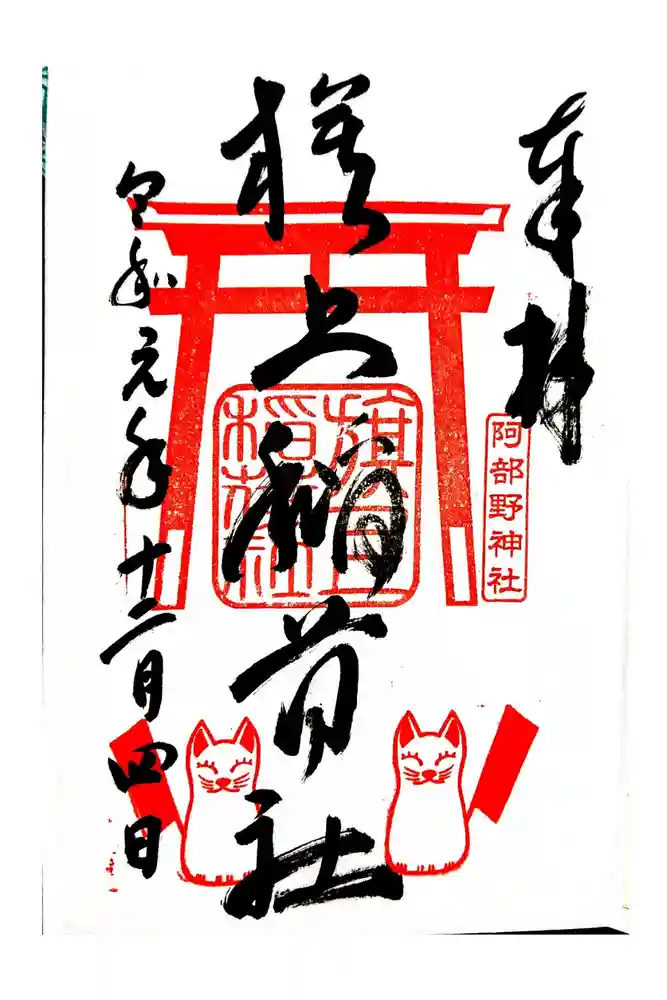 奉拝
阿部野神社
旗上稲荷社
旗上
稲荷社
令和元年十二月四日